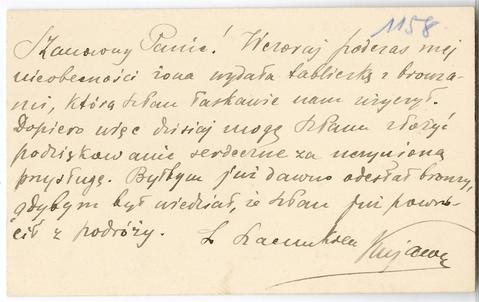 1158
Szanowny Panie! Wczoraj podczas mej
nieobecności żona wydała tabliczkę z bronza-
mi, którą Pan łaskawie nam użyczył.
Dopiero więc dzisiaj mogę Panu złożyć
podziękowanie serdeczne za uczynioną
przysługę. Byłbym już dawno odesłał bronzy,
gdybym był wiedział, że Pan już powró-
cił z podróży.
Z szacunkiem